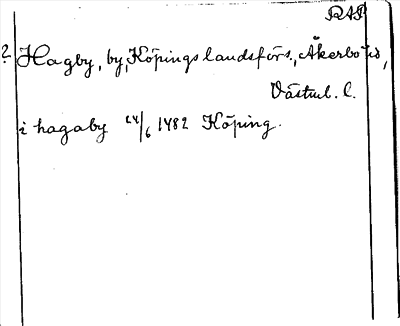 RAP
? Hagby, by, Köpings landsförs., Åkerbo hd,
Västml. l.
i hagaby 24/6 1482 Köping.